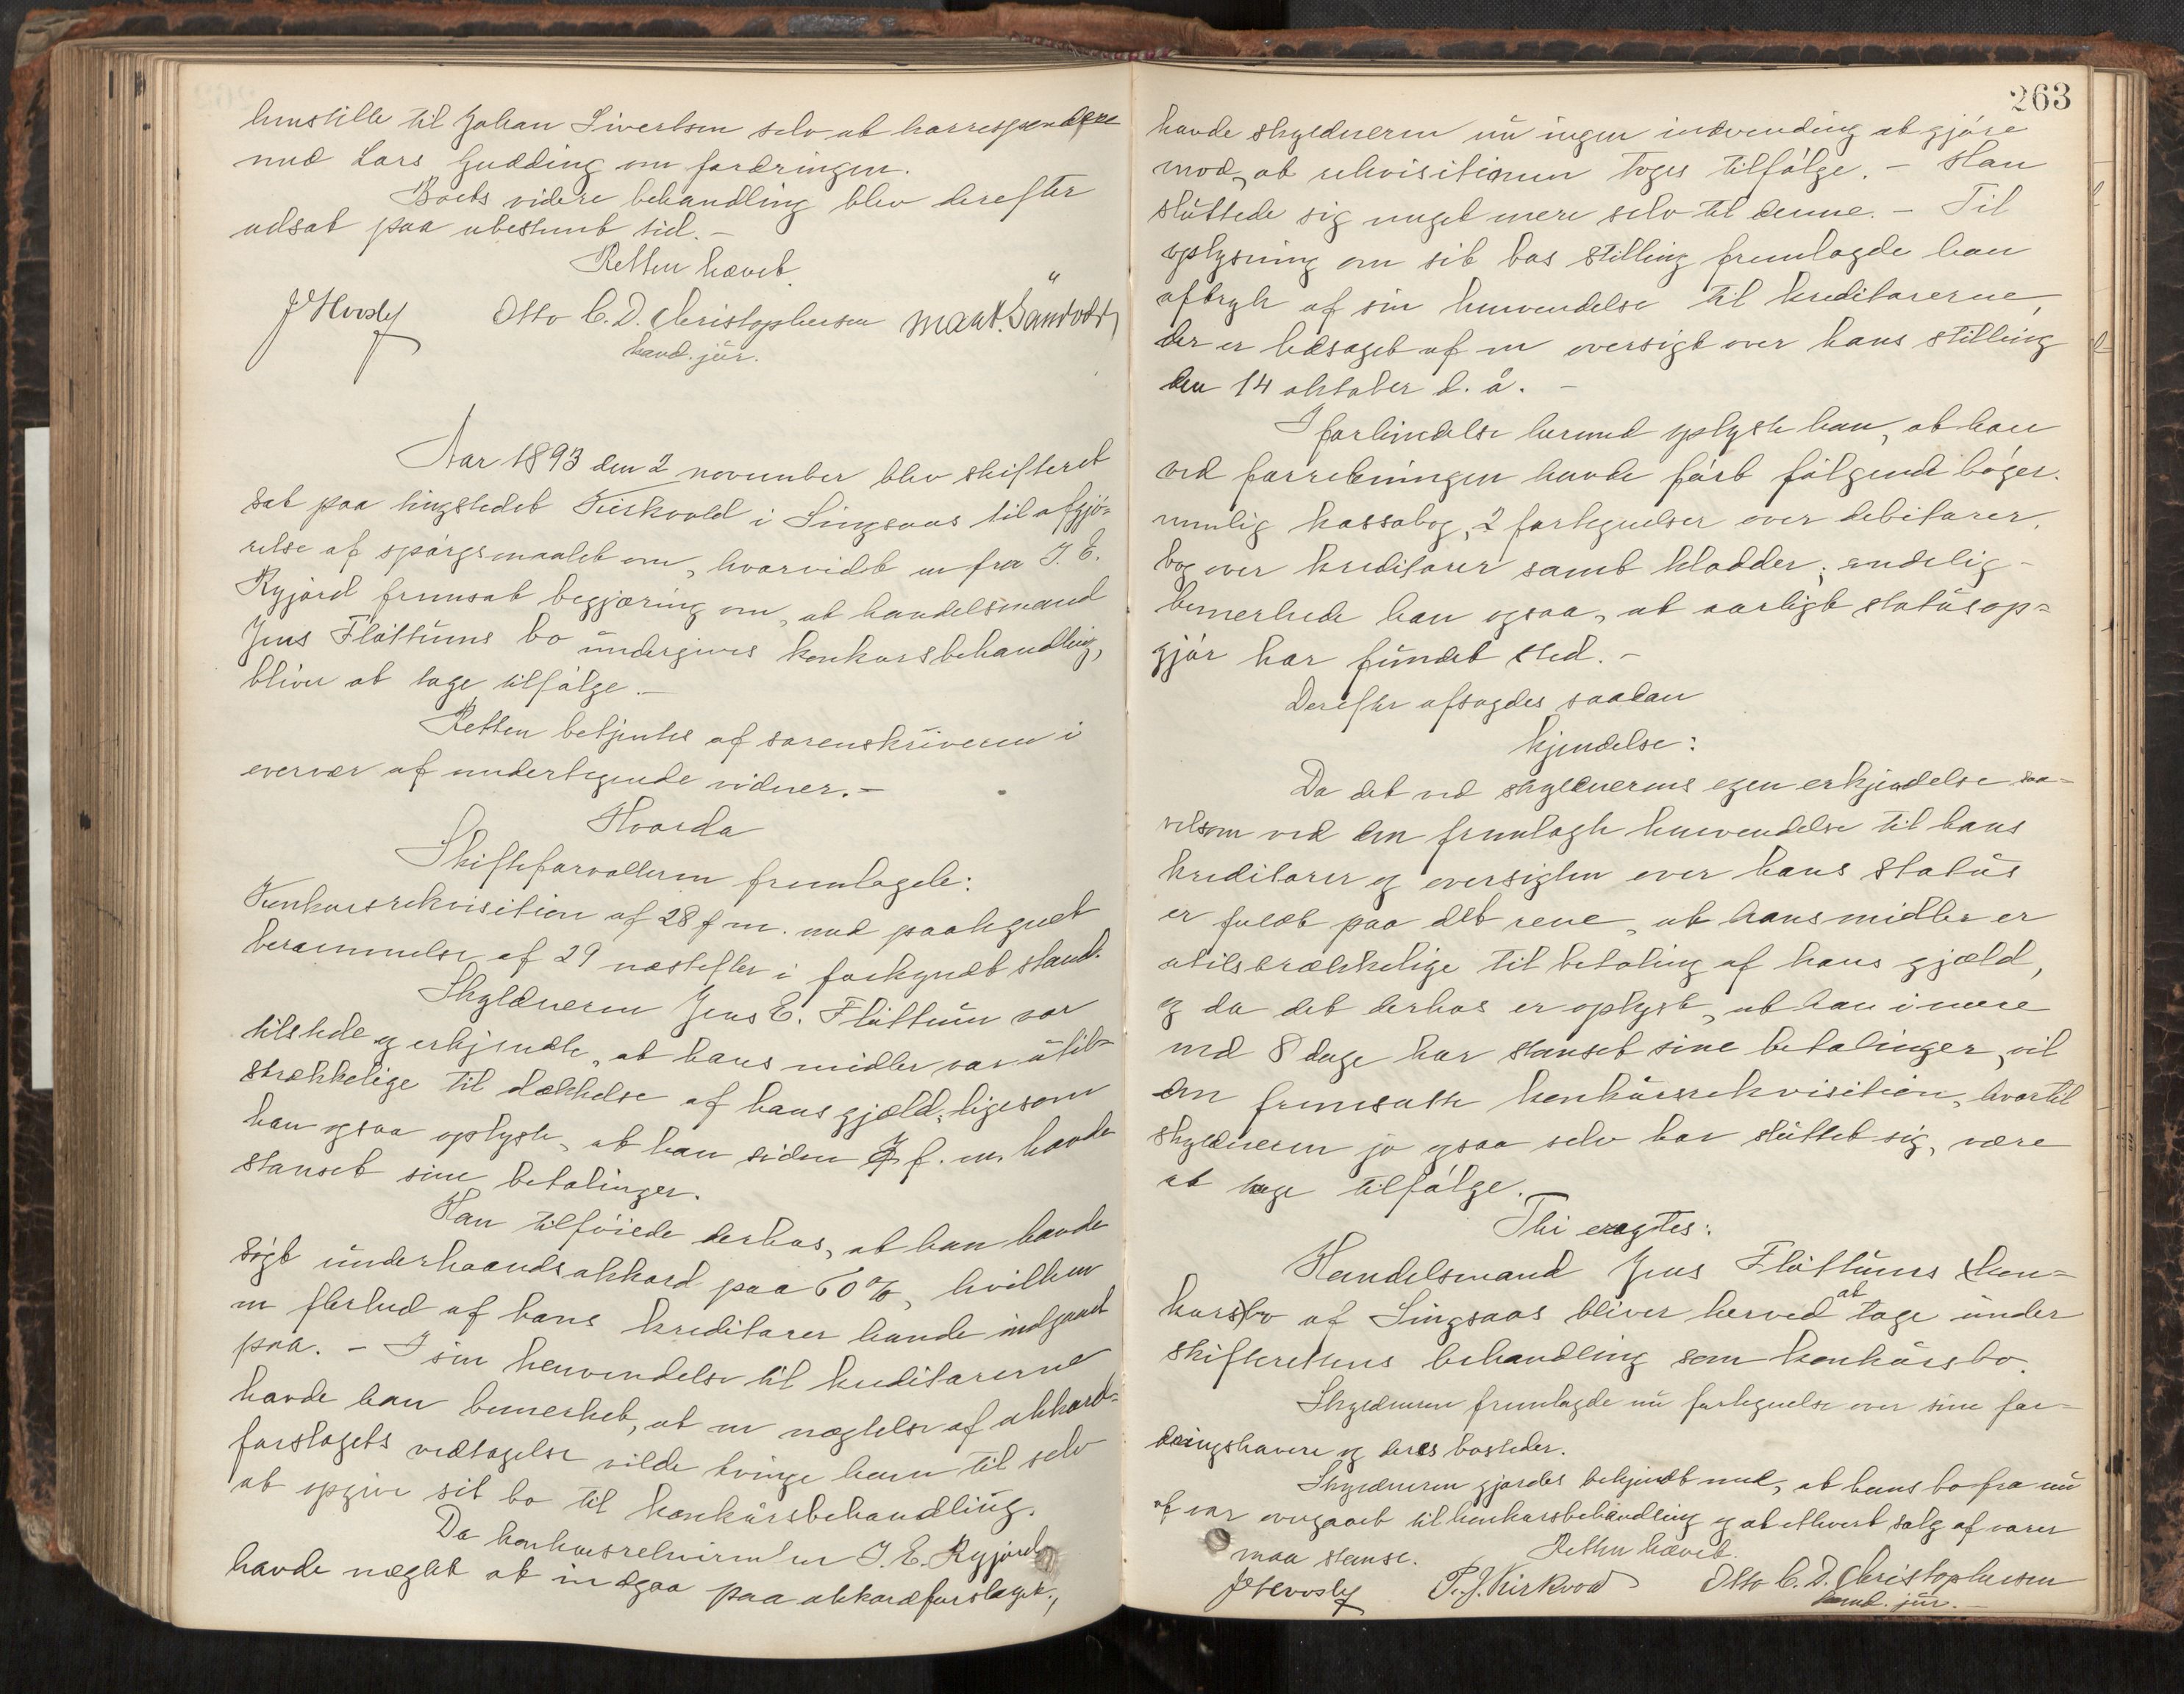 henstille til Johan Sivertsen selv at korrespondere
med Lars Gudding om fordringen.
Boets videre behandling blev derefter
udsat paa ubestemt tid. –
Retten hævet.
Otto C. D. Christophersen
kand. jur.
Aar 1893 den 2 november blev skifteret
sat paa tingstedet Kirkvold i Singsaas til afgjö-
relse af spörgsmaalet om, hvorvidt en fra J. E.
Ryjord fremsat begjæring om, at handelsmand
Jens Flöttums bo undergives konkursbehandling,
bliver at tage tilfölge. –
Retten betjentes af sorenskriveren i
overvær af undertegnede vidner. –
Hvorda
Skifteforvalteren fremlagde:
Konkursrekvisition af 28 f m. med paategnet
berammelse af 29 næstefter i forkyndt stand.
Skyldneren Jens E. Flöttum var
tilstede og erkjendte, at hans midler var util-
strækkelige til dækkelse af hans gjæld; ligesom
han ogsaa oplyste, at han siden f. m. havde
stanset sine betalinger.
Han tilföiede derhos, at han havde
sögt underhaandsakkord paa 60 %, hvilken
en flerhed af hans kreditorer havde indgaaet
paa. – I sin henvendelse til kreditorerne
havde han bemerket, at en nægtelse af akkord-
forslagets vedtagelse vilde tvinge ham til selv
at opgive sit bo til konkursbehandling.
Da konkursrekvirenten J. E. Ryjord
havde nægtet at indgaa paa akkordforslaget,
263
havde skyldneren nu ingen indvending at gjöre
mod, at rekvisitionen toges tilfölge. – Han
sluttede sig meget mere selv til denne. – Til
oplysning om sit bos stilling fremlagde han
aftryk af sin henvendelse til kreditorerne,
der er ledsaget af en oversigt over hans stilling
den 14 oktober d. å. –
I forbindelse hermed oplyste han, at han
ved forretningen havde fört fölgende böger.
nemlig kassabog, 2 fortegnelser over debitorer,
bog over kreditorer samt kladder; endelig –
bemerkede han ogsaa, at aarligt statusop-
gjör har fundet sted. –
Derefter afsagdes saadan
kjendelse:
Da det ved skyldnerens egen erkjendelse saa-
velsom ved den fremlagte henvendelse til hans
kreditorer og oversigten over hans status
er fuldt paa det rene, at hans midler er
utilstrækkelige til betaling af hans gjæld,
og da det derhos er oplyst, at han i mere
end 8 dage har stanset sine betalinger, vil
den fremsatte konkursrekvisition, hvortil
skyldneren jo ogsaa selv har sluttet sig, være
at tage tilfölge.
Thi eragtes:
Handelsmand Jens Flöttums kon-
kursbo af Singsaas bliver herved at tage under
skifterettens behandling som konkursbo.
Skyldneren fremlagde nu fortegnelse over sine for-
dringshavere og deres bosteder.
Skyldneren gjordes bekjendt med, at hans bo fra nu
af var overgaaet til konkursbehandling og at ethvert salg af varer
maa stanse. Retten hævet.
Kirkvold Otto C. D. Christophersen
kand. jur. –